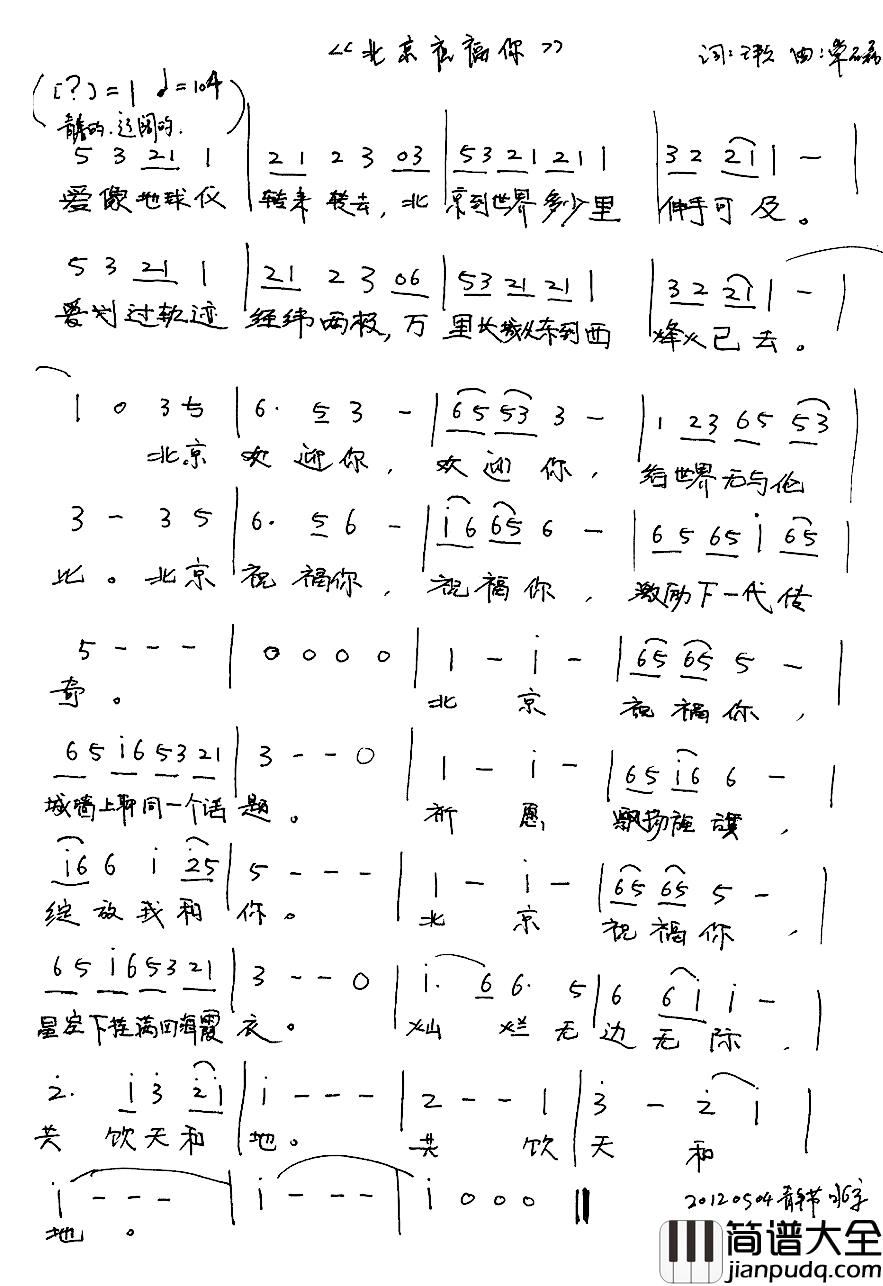 《北京祝福你》
词: 曲:常磊
([?]=1 ♩=104
青春的.辽阔的.)
5 3 21 1 | 21 2 3 03 | 53 21 21 1 | 32 21 1 - |
爱像地球仪 转来转去,北京到世界多少里 伸手可及。
5 3 21 1 | 21 2 3 06 | 53 21 21 1 | 32 21 1 - |
爱划过轨迹 经纬两极,万里长城从东到西 烽火已去。
1 0 3 5 | 6· 5 3 - | 65 53 3 - | 1 23 65 53 |
北京欢迎你,欢迎你,给世界无与伦
3 - 3 5 | 6· 5 6 - | i6 65 6 - | 65 65 i 65 |
比。北京祝福你,祝福你,激励下一代传
5 - - - | 0 0 0 0 | 1 - i - | 65 65 5 - |
奇。北京祝福你,
65 i6 53 21 | 3 - - 0 | 1 - i - | 65 i6 6 - |
城墙上聊同一个话题。祈愿飘扬旌旗,
i6 6 i 25 | 5 - - - | 1 - i - | 65 65 5 - |
绽放我和你。北京祝福你,
65 i6 53 21 | 3 - - 0 | i· 6 6· 5 | 6 6i i - |
星空下挂满四海霞衣。灿烂无边无际,
2· i3 2i | i - - - | 2 - - 1 | 3 - 2 i |
共饮天和地。共饮天和
i - - - | i - - - | i 0 0 0 ‖
地。
20120504青年节
简谱大全
jianpudq.com